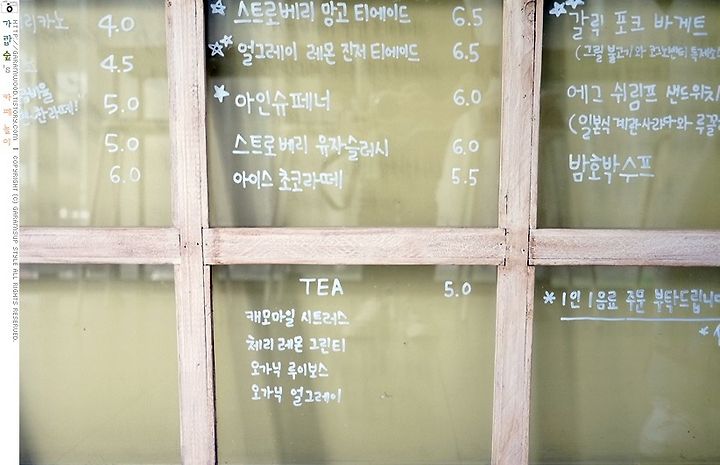 리카노 4.0
4.5
5.0
5.0
6.0
스트로베리 망고 티에이드 6.5
얼그레이 레몬 진저 티에이드 6.5
아인슈페너 6.0
스트로베리 유자슬러시 6.0
아이스 쵸코라떼 5.5
갈릭 포크 바게트
에그 쉬림프 샌드위치
(일본식 계란사라다와 루꼴
밤호박수프
TEA 5.0
캐모마일 시트러스
체리 레몬 그린티
오가닉 루이보스
오가닉 얼그레이
*1인 1음료 주문 부탁드립니
HTTP://GARAMSUP.TISTORY.COM | COPYRIGHT (C) GARAMSUP STYLE ALL RIGHTS RESERVED.